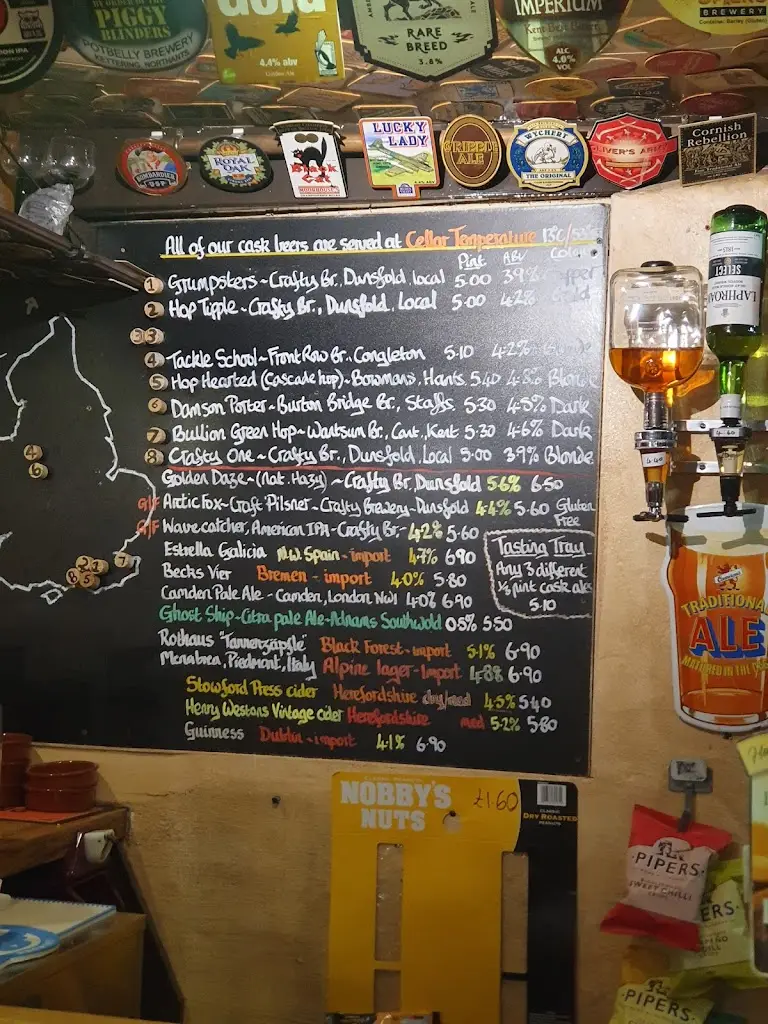 PIGGY
BLINDERS
POTBELLY BREWERY
KETTERING, NORTHANTS
Gold
4.4% abv
RARE
BREED
3.8%
IMPERIUM
ALC
4.0%
VOL
BREWERY
BOMBARDIER
ROYAL
OAK
Black
LUCKY
LADY
GRIBBLE
ALE
WYCHERT
THE ORIGINAL
OLIVER'S ARMY
Cornish
Rebellion
All of our cask beers are served at Cellar Temperature 13C/
Pint ABV Colour
1 Grumpsters ~ Crafty Br, Dunsfold, local 5.00 3.9%
2 Hop Tipple ~ Crafty Br., Dunsfold, Local 5.00 4.2%
3 3
4 Tackle School ~ Front Row Br. Congleton 5.10 4.2%
5 Hop Hearted (Cascade hop) ~ Bowmans, Hants 5.40 4.8% Blonde
6 Damson Porter ~ Burton Bridge Br., Staffs 5.30 4.5% Dark
7 Bullion Green Hop ~ Wantsum Br., Cant, Kent 5.30 4.6% Dark
8 Crafty One ~ Crafty Br., Dunsfold, Local 5.00 3.9% Blonde
Golden Daze ~ (Not Hazy) ~ Crafty Br, Dunsfold 5.6% 6.50
G/F Arctic Fox ~ Craft Pilsner ~ Crafty Brewery ~ Dunsfold 4.4% 5.60 Gluten Free
G/F Wavecatcher, American IPA ~ Crafty Br. - 4.2% 5.60
Estrella Galicia N.W. Spain - import 4.7% 6.90
Becks Vier Bremen - import 4.0% 5.80
Camden Pale Ale - Camden, London NW1 4.0% 6.90
Ghost Ship - Citra pale Ale - Adnams Southwold 0.5% 5.50
Rothaus "Tannenzäpfle" Black Forest - import 5.1% 6.90
Menabrea, Piedmont, Italy Alpine lager - Import 4.8% 6.90
Stowford Press cider Herefordshire dry/med 4.5% 5.40
Henry Westons Vintage cider Herefordshire med 5.2% 5.80
Guinness Dublin - import 4.1% 6.90
Tasting Tray
Any 3 different
⅓ pint cask ales
5.10
4
6
7
8
5
LAPHROAIG
SELECT
1815
4.40
TRADITIONAL
ALE
MATURED IN THE
NOBBY'S
NUTS
£1.60
CLASSIC
DRY ROASTED
PEANUTS
PIPERS
SWEET CHILLI
PIPERS